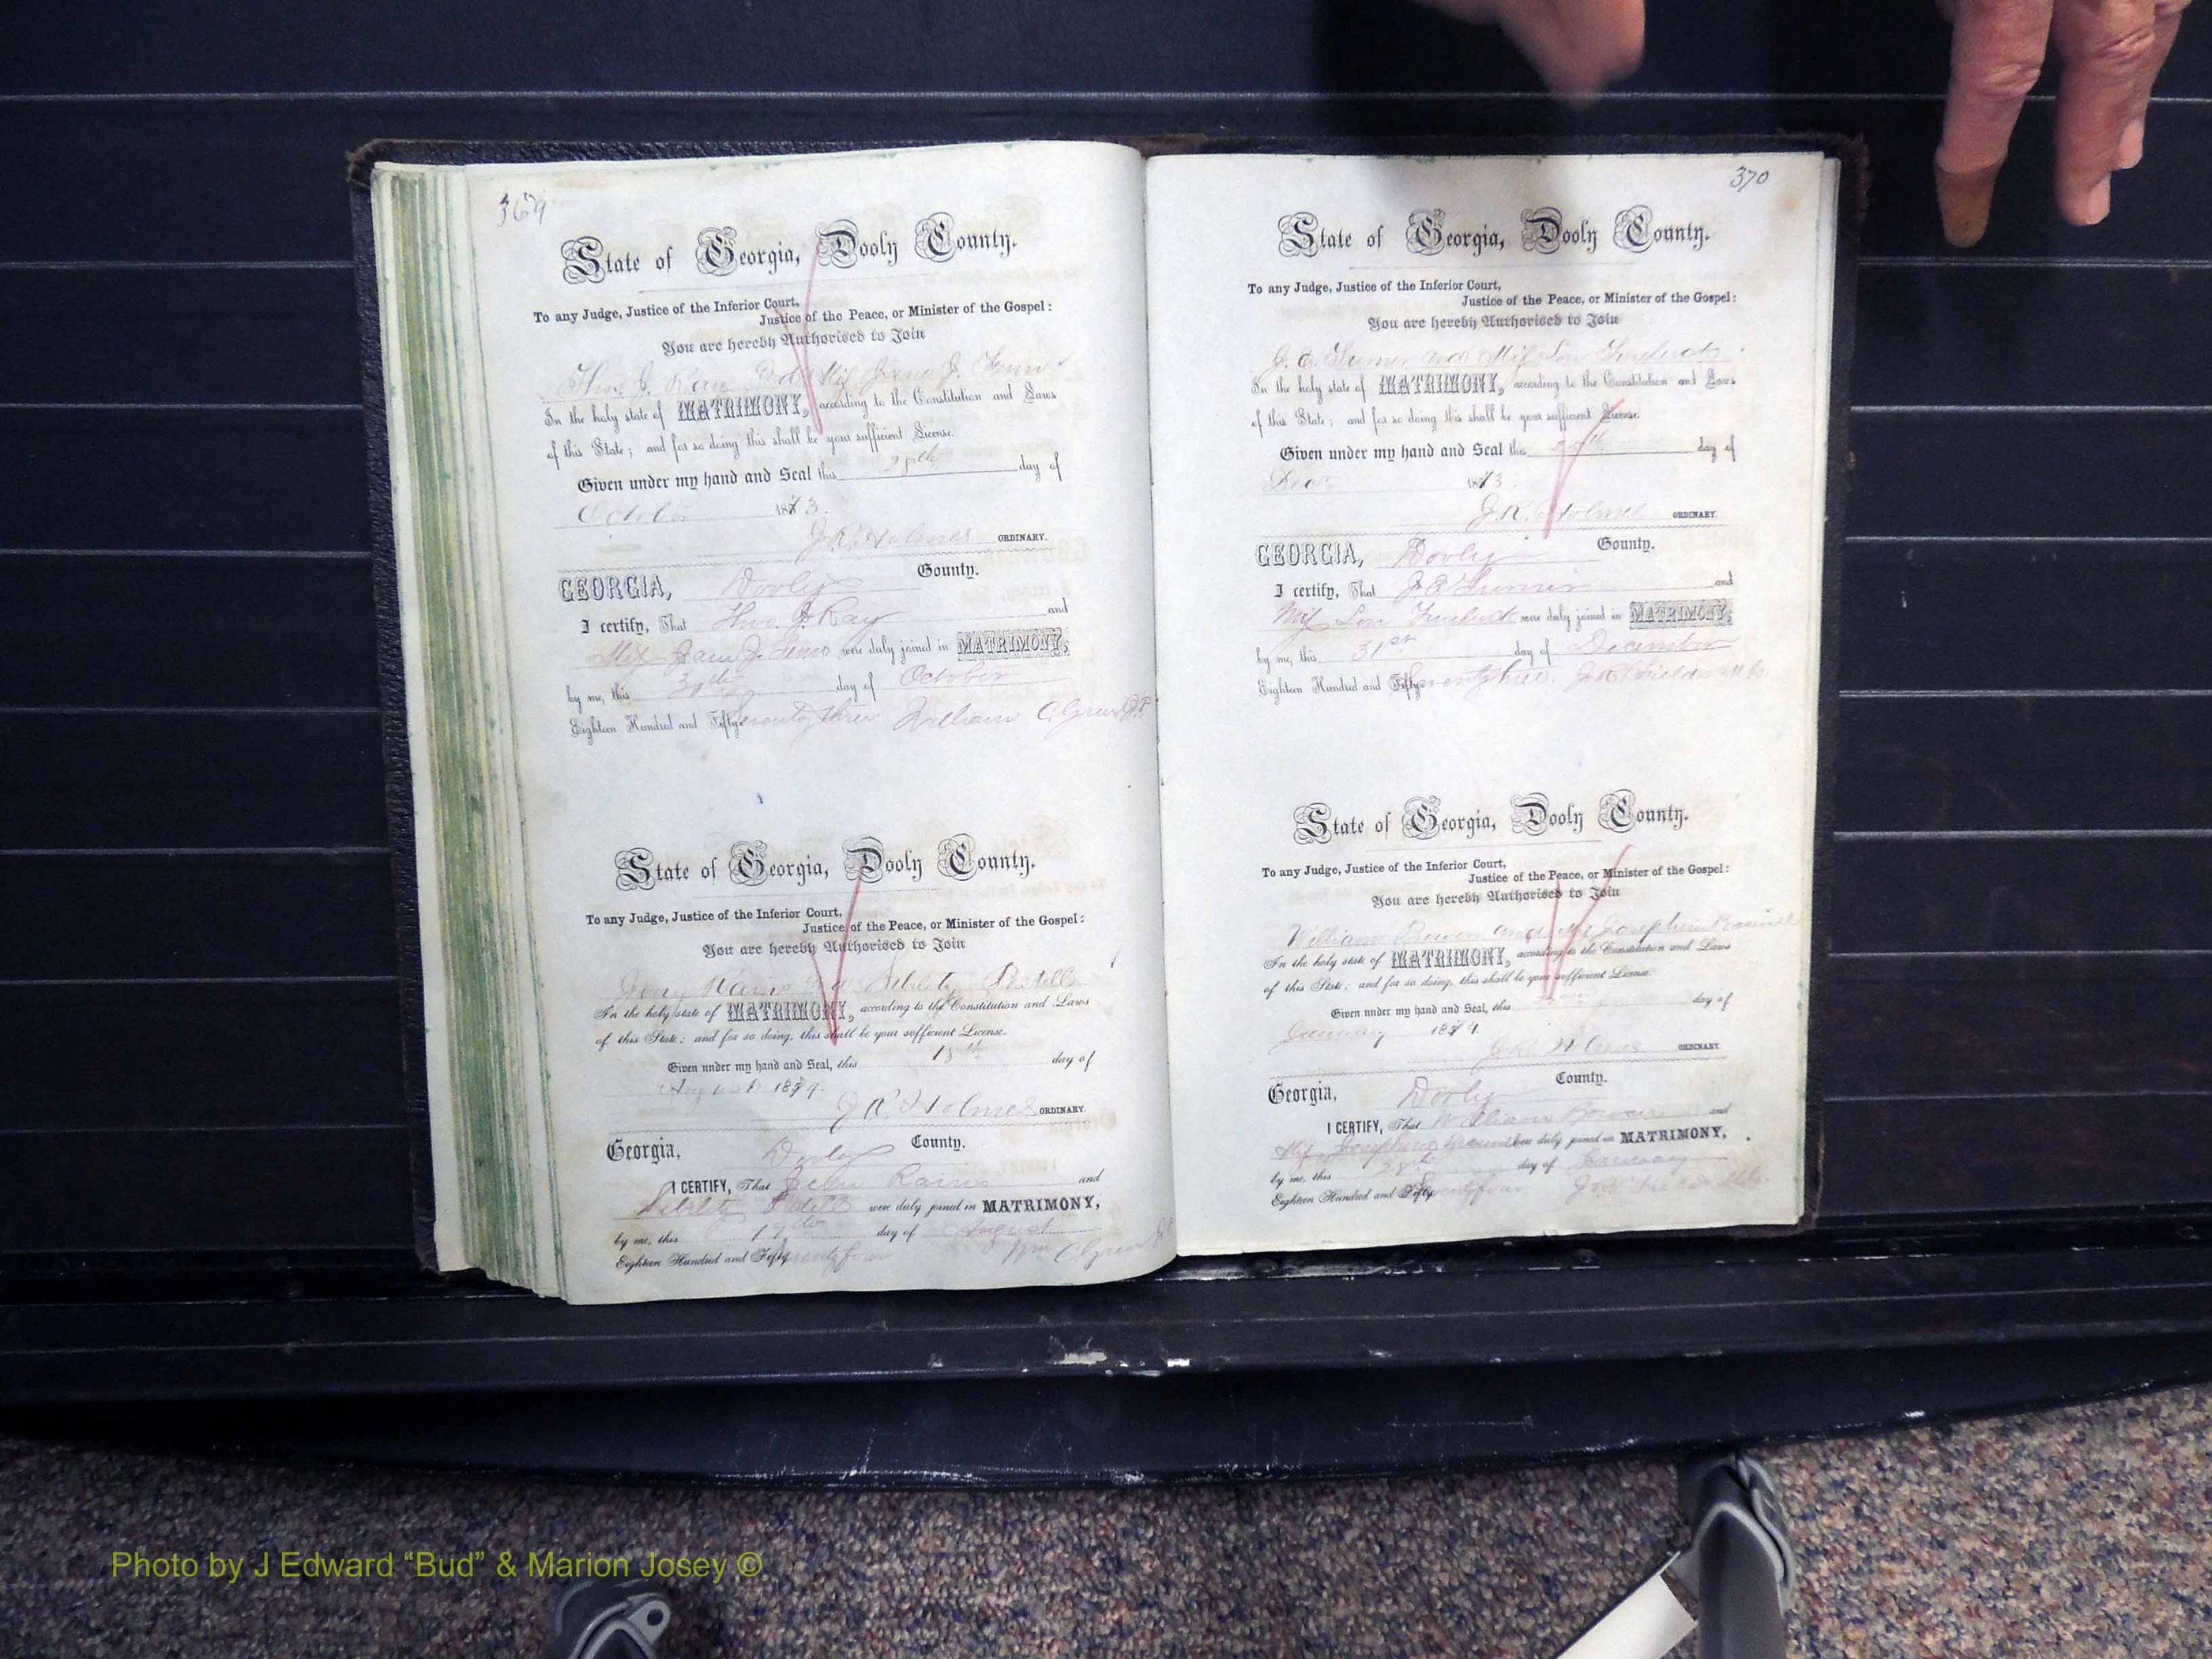 369
State of Georgia, Dooly County.
To any Judge, Justice of the Inferior Court,
Justice of the Peace, or Minister of the Gospel:
You are hereby Authorised to Join
Thos. J. Ray and Miss Jane J.
In the holy state of MATRIMONY, according to the Constitution and Laws
of this State; and for so doing this shall be your sufficient License.
Given under my hand and Seal this day of
October 1873.
J. R. Holmes ORDINARY.
GEORGIA, Dooly County.
I certify, That Thos. J. Ray and
Miss Jane J. were duly joined in MATRIMONY,
by me, this 30th day of October
Eighteen Hundred and Fifty Seventy three William C Green J.P
State of Georgia, Dooly County.
To any Judge, Justice of the Inferior Court,
Justice of the Peace, or Minister of the Gospel:
You are hereby Authorised to Join
Rains and
In the holy state of MATRIMONY, according to the Constitution and Laws
of this State; and for so doing, this shall be your sufficient License.
Given under my hand and Seal, this 18th day of
August 1874.
J. R. Holmes ORDINARY.
Georgia, Dooly County.
I CERTIFY, That Rains and
were duly joined in MATRIMONY,
by me, this 19th day of August
Eighteen Hundred and Fifty Seventy four Wm C Green J.P
370
State of Georgia, Dooly County.
To any Judge, Justice of the Inferior Court,
Justice of the Peace, or Minister of the Gospel:
You are hereby Authorised to Join
J. E. and Miss Lou
In the holy state of MATRIMONY, according to the Constitution and Laws
of this State; and for so doing this shall be your sufficient License.
Given under my hand and Seal this day of
Dec 1873.
J. R. Holmes ORDINARY.
GEORGIA, Dooly County.
I certify, That J. E. and
Miss Lou were duly joined in MATRIMONY,
by me, this 31st day of December
Eighteen Hundred and Fifty Seventy three. J. R. Fields M.G.
State of Georgia, Dooly County.
To any Judge, Justice of the Inferior Court,
Justice of the Peace, or Minister of the Gospel:
You are hereby Authorised to Join
William Bowen and Miss Josephine
In the holy state of MATRIMONY, according to the Constitution and Laws
of this State; and for so doing, this shall be your sufficient License.
Given under my hand and Seal, this day of
January 1874.
J. R. Holmes ORDINARY
Georgia, Dooly County.
I CERTIFY, That William Bowen and
Miss Josephine were duly joined in MATRIMONY,
by me, this 28th day of January
Eighteen Hundred and Fifty Seventy four J. R. Fields M.G.
Photo by J Edward “Bud” & Marion Josey ©